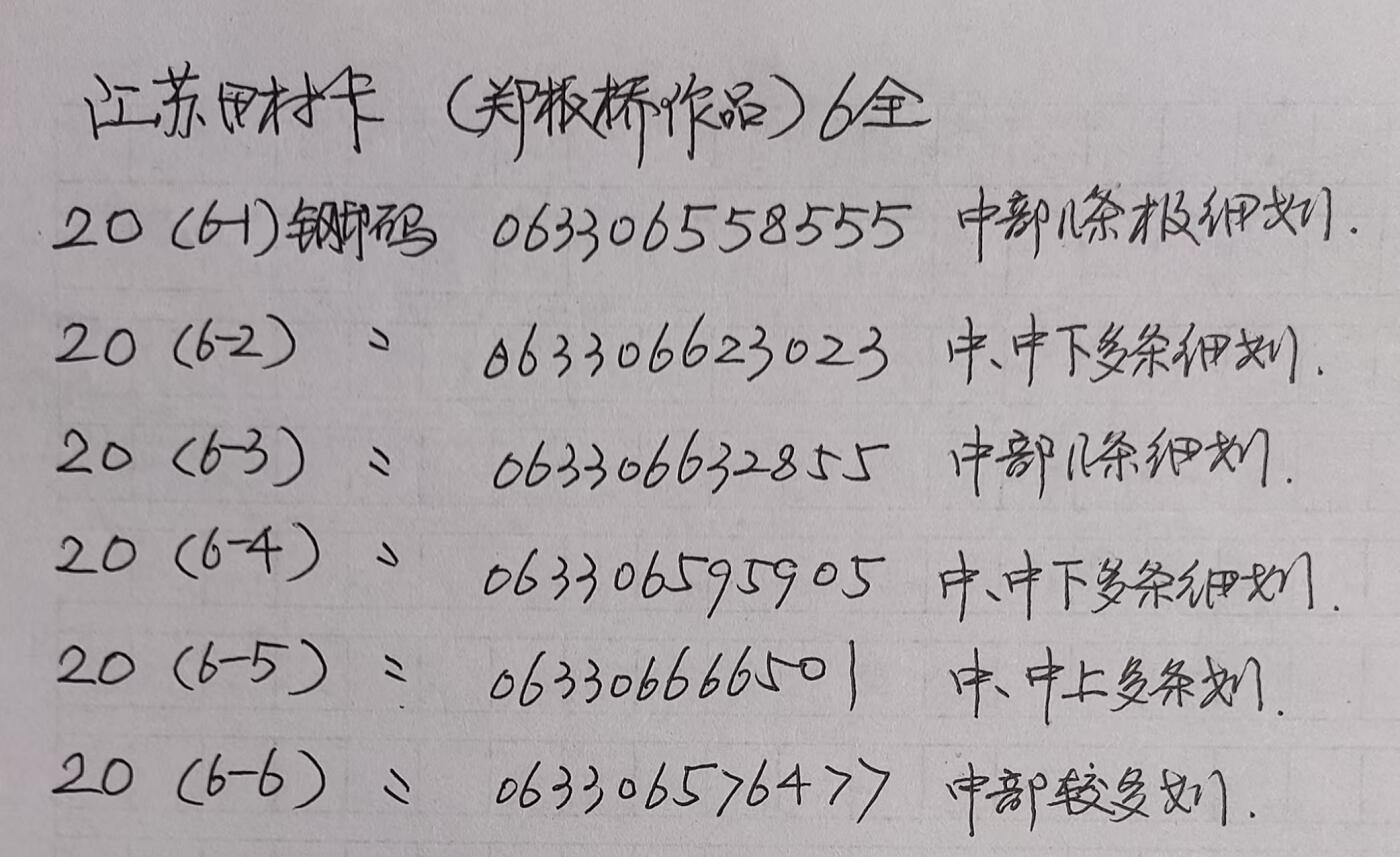 江苏田村卡 (郑板桥作品) 6全
20 (6-1) 钢印码 063306558555 中部几条极细划.
20 (6-2) 〃 063306623023 中、中下多条细划.
20 (6-3) 〃 063306632855 中部几条细划.
20 (6-4) 〃 063306595905 中、中下多条细划.
20 (6-5) 〃 063306666501 中、中上多条划.
20 (6-6) 〃 063306576477 中部较多划.